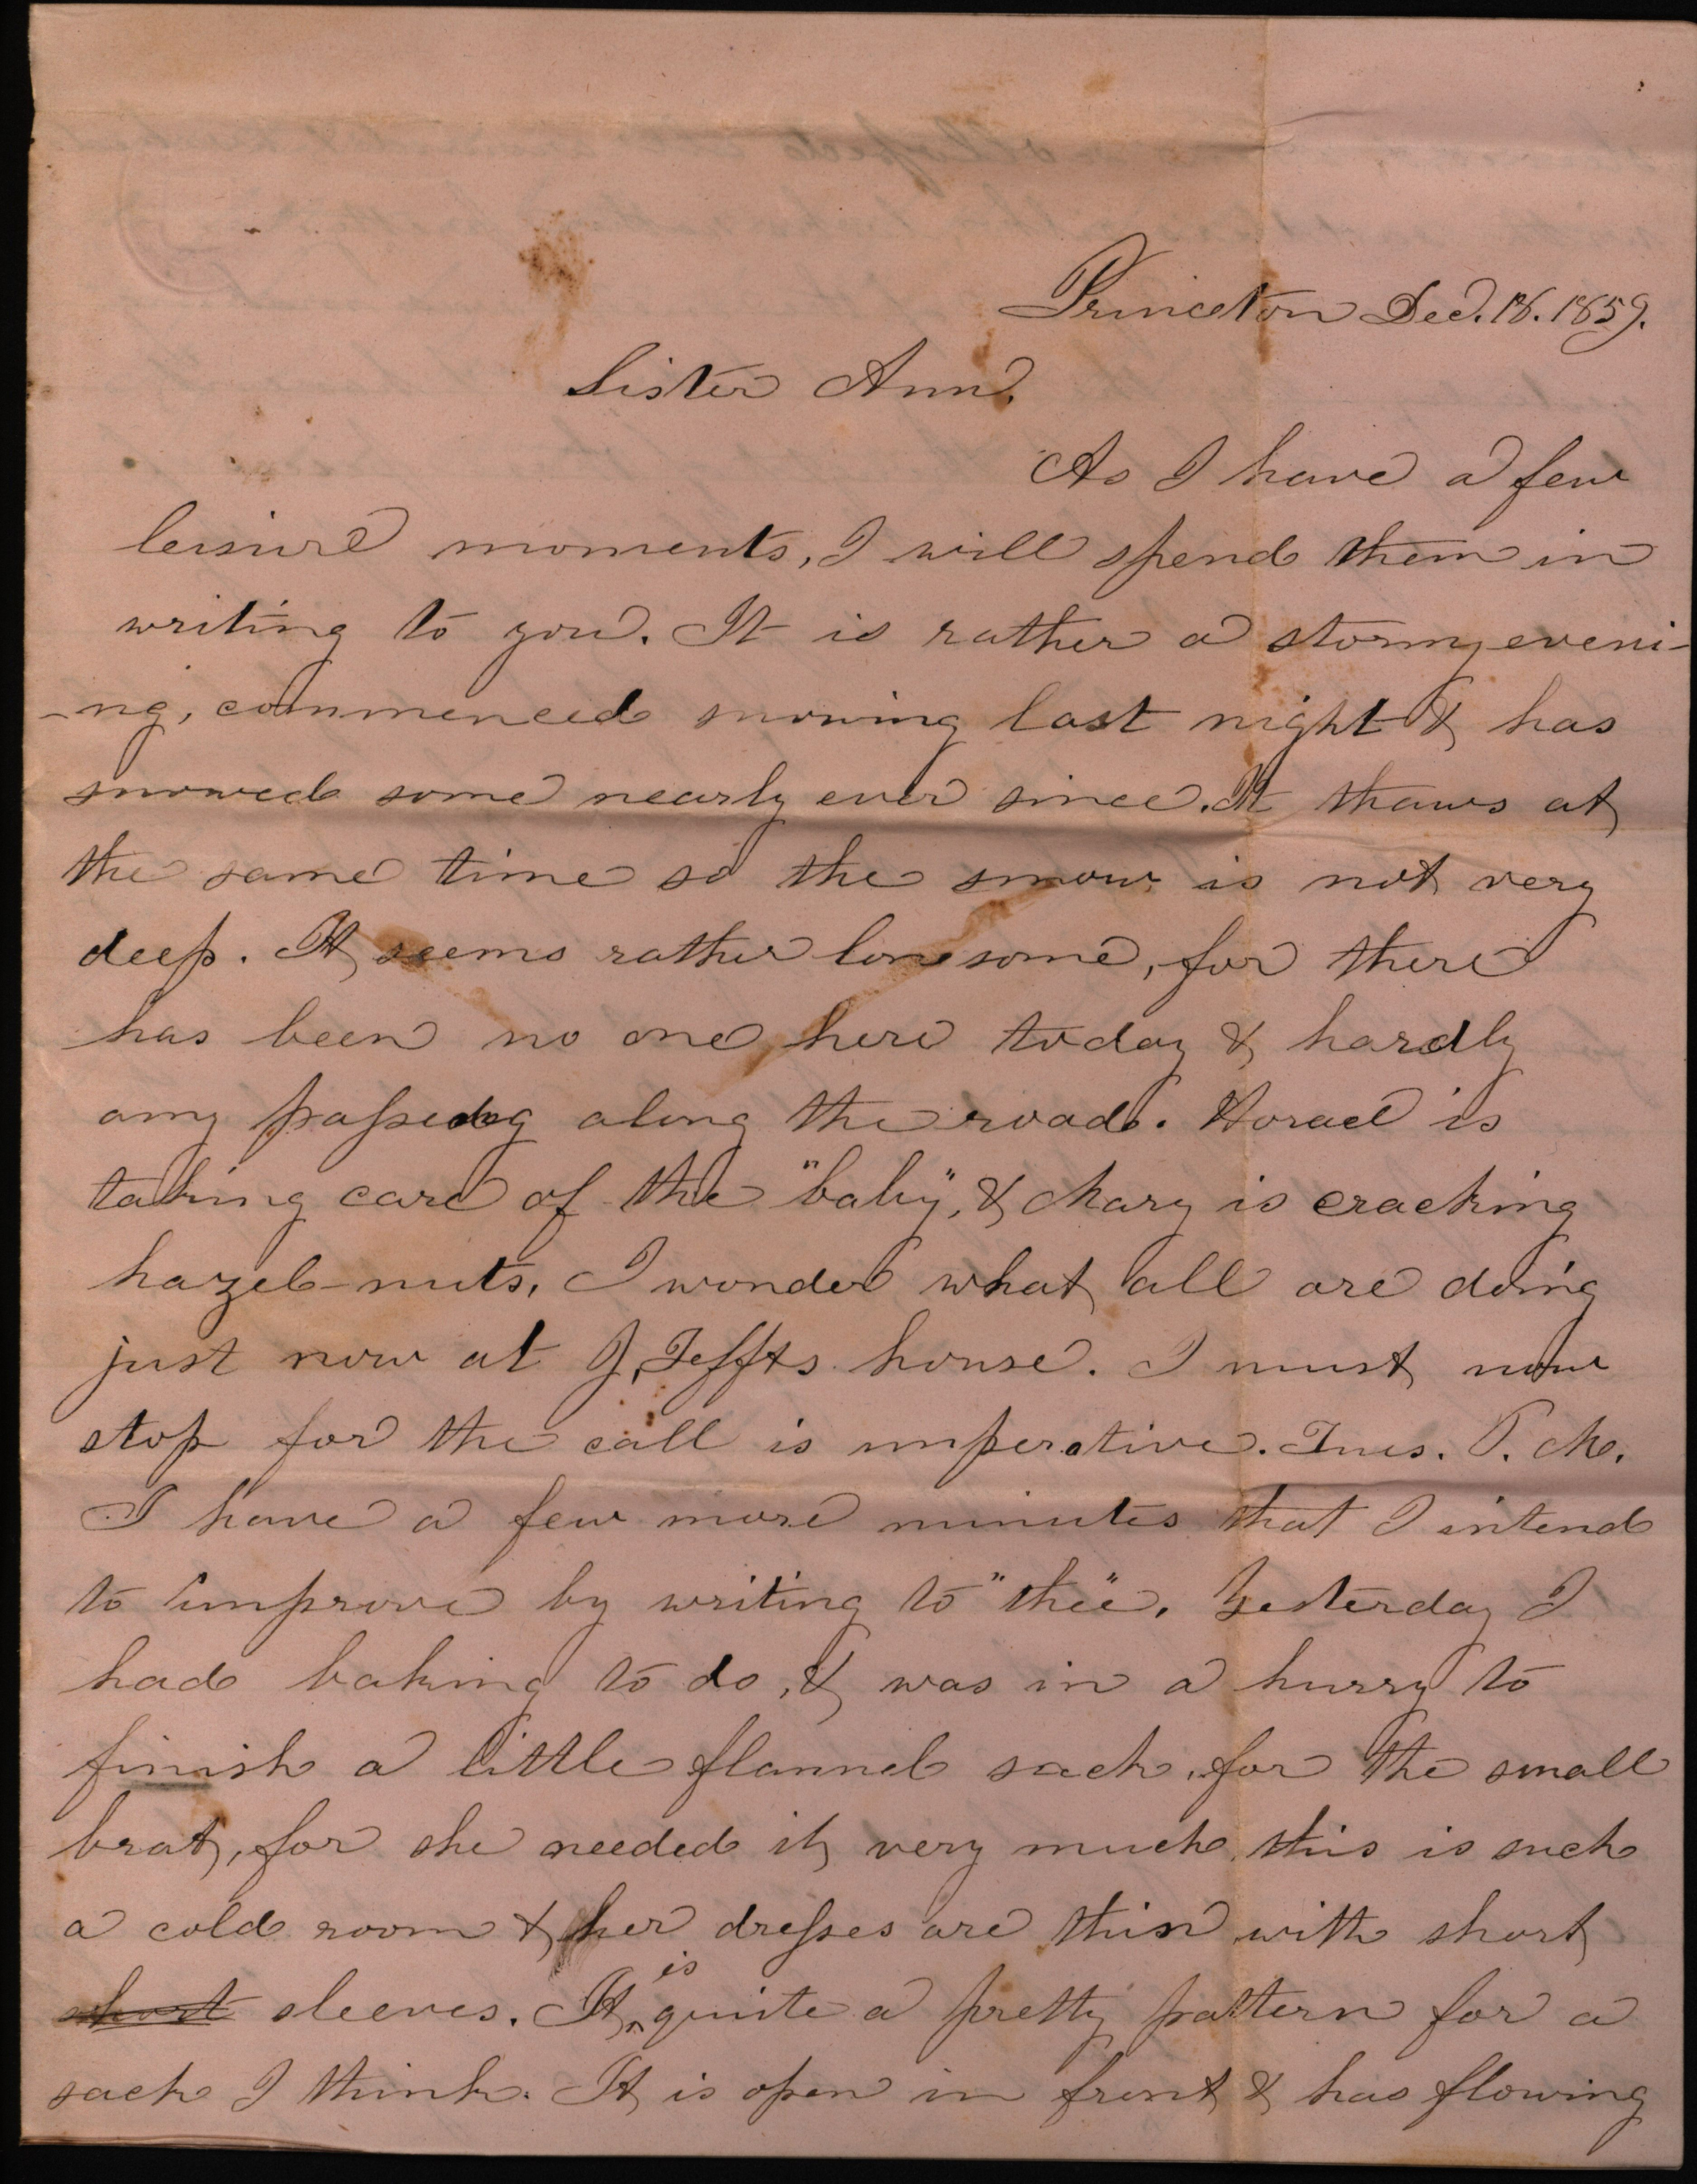 Princeton Dec. 18. 1859.
Sister Ann,
As I have a few
leisure moments, I will spend them in
writing to you. It is rather a stormy eveni-
-ng, commenced snowing last night & has
snowed some nearly ever since. It thaws at
the same time so the snow is not very
deep. It seems rather lonesome, for there
has been no one here today & hardly
any passing along the road. Horace is
taking care of the "baby", & Mary is cracking
hazel-nuts. I wonder what all are doing
just now at J. Teffts house. I must now
stop for the call is imperative. Tues. P. M.
I have a few more minutes that I intend
to improve by writing to "thee". Yesterday I
had baking to do, & was in a hurry to
finish a little flannel sack, for the small
brat, for she needed it very much, this is such
a cold room & her dresses are thin with short
short sleeves. It is quite a pretty pattern for a
sack I think. It is open in front & has flowing